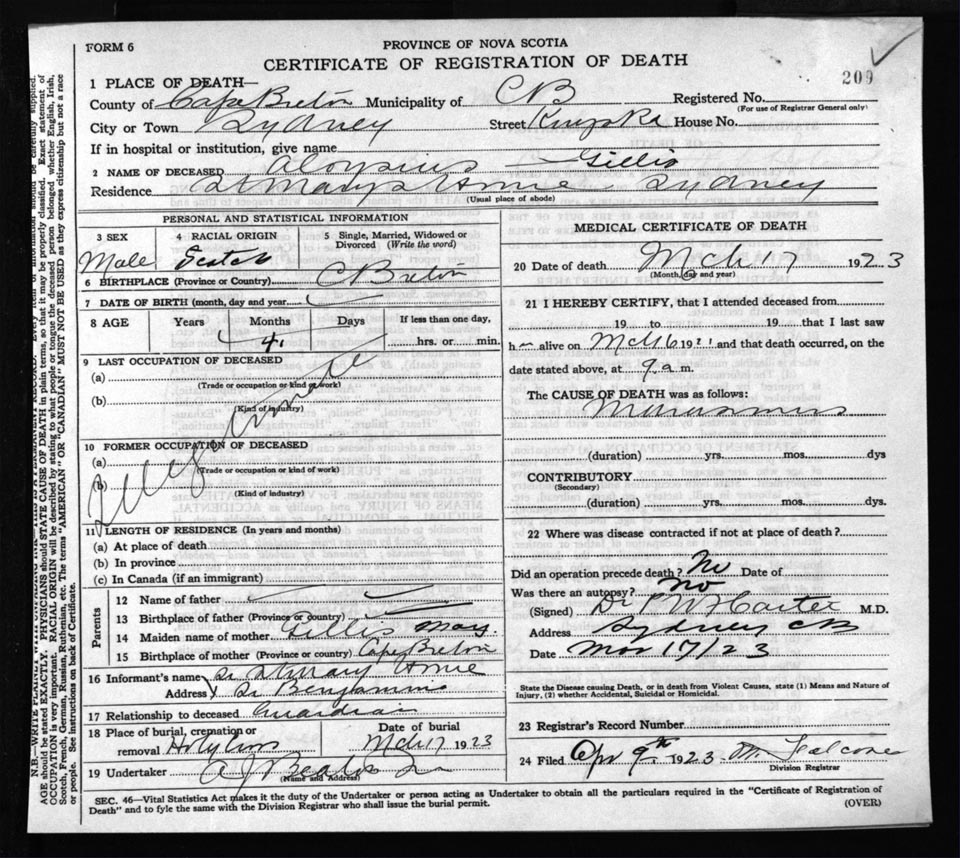 FORM 6
PROVINCE OF NOVA SCOTIA
CERTIFICATE OF REGISTRATION OF DEATH
209
1 PLACE OF DEATH—
County of Cape Breton Municipality of CB Registered No.
(For use of Registrar General only)
City or Town Sydney Street Kings Rd House No.
If in hospital or institution, give name
2 NAME OF DECEASED Aloysius Gillis
Residence St Marys Home Sydney
(Usual place of abode)
PERSONAL AND STATISTICAL INFORMATION
3 SEX 4 RACIAL ORIGIN 5 Single, Married, Widowed or Divorced (Write the word)
Male Scotch
6 BIRTHPLACE (Province or Country) C Breton
7 DATE OF BIRTH (month, day and year)
8 AGE Years Months Days If less than one day,
4 hrs. or min.
9 LAST OCCUPATION OF DECEASED
(a)
(Trade or occupation or kind of work)
(b)
(Kind of industry)
10 FORMER OCCUPATION OF DECEASED
(a)
(Trade or occupation or kind of work)
(b)
(Kind of industry)
Illegitimate
11 LENGTH OF RESIDENCE (In years and months)
(a) At place of death
(b) In province
(c) In Canada (if an immigrant)
Parents
12 Name of father
13 Birthplace of father (Province or country)
14 Maiden name of mother Gillis Mary
15 Birthplace of mother (Province or country) Cape Breton
16 Informant's name Sr St Mary Home
Address Sr Benjamin
17 Relationship to deceased Guardian
18 Place of burial, cremation or removal Holy Cross Date of burial Mch 17 1923
19 Undertaker A J Beaton
(Name and Address)
MEDICAL CERTIFICATE OF DEATH
20 Date of death Mch 17 1923
(Month, day and year)
21 I HEREBY CERTIFY, that I attended deceased from
19 to 19 that I last saw
h alive on Mch 16 1921 and that death occurred, on the
date stated above, at 9 a. m.
The CAUSE OF DEATH was as follows:
Marasmus
(duration) yrs. mos. dys
CONTRIBUTORY
(Secondary)
(duration) yrs. mos. dys.
22 Where was disease contracted if not at place of death?
Did an operation precede death? No Date of
Was there an autopsy? no
(Signed) Dr Carter M.D.
Address Sydney CB
Date Mar 17/23
State the Disease causing Death, or in death from Violent Causes, state (1) Means and Nature of
Injury, (2) whether Accidental, Suicidal or Homicidal.
23 Registrar's Record Number
24 Filed Apr 9th 1923
Division Registrar
SEC. 46—Vital Statistics Act makes it the duty of the Undertaker or person acting as Undertaker to obtain all the particulars required in the "Certificate of Registration of
Death" and to fyle the same with the Division Registrar who shall issue the burial permit.
(OVER)
AGE should be stated EXACTLY. PHYSICIANS should STATE CAUSE OF DEATH in plain terms, so that it may be properly classified. Exact statement of
OCCUPATION is very important. RACIAL ORIGIN will be described by stating to what people or tongue the deceased person belonged whether English, Irish,
Scotch, French, German, Russian, Ruthenian, etc. The terms "AMERICAN" OR "CANADIAN" MUST NOT BE USED as they express citizenship but not a race
or people. See instructions on back of Certificate.